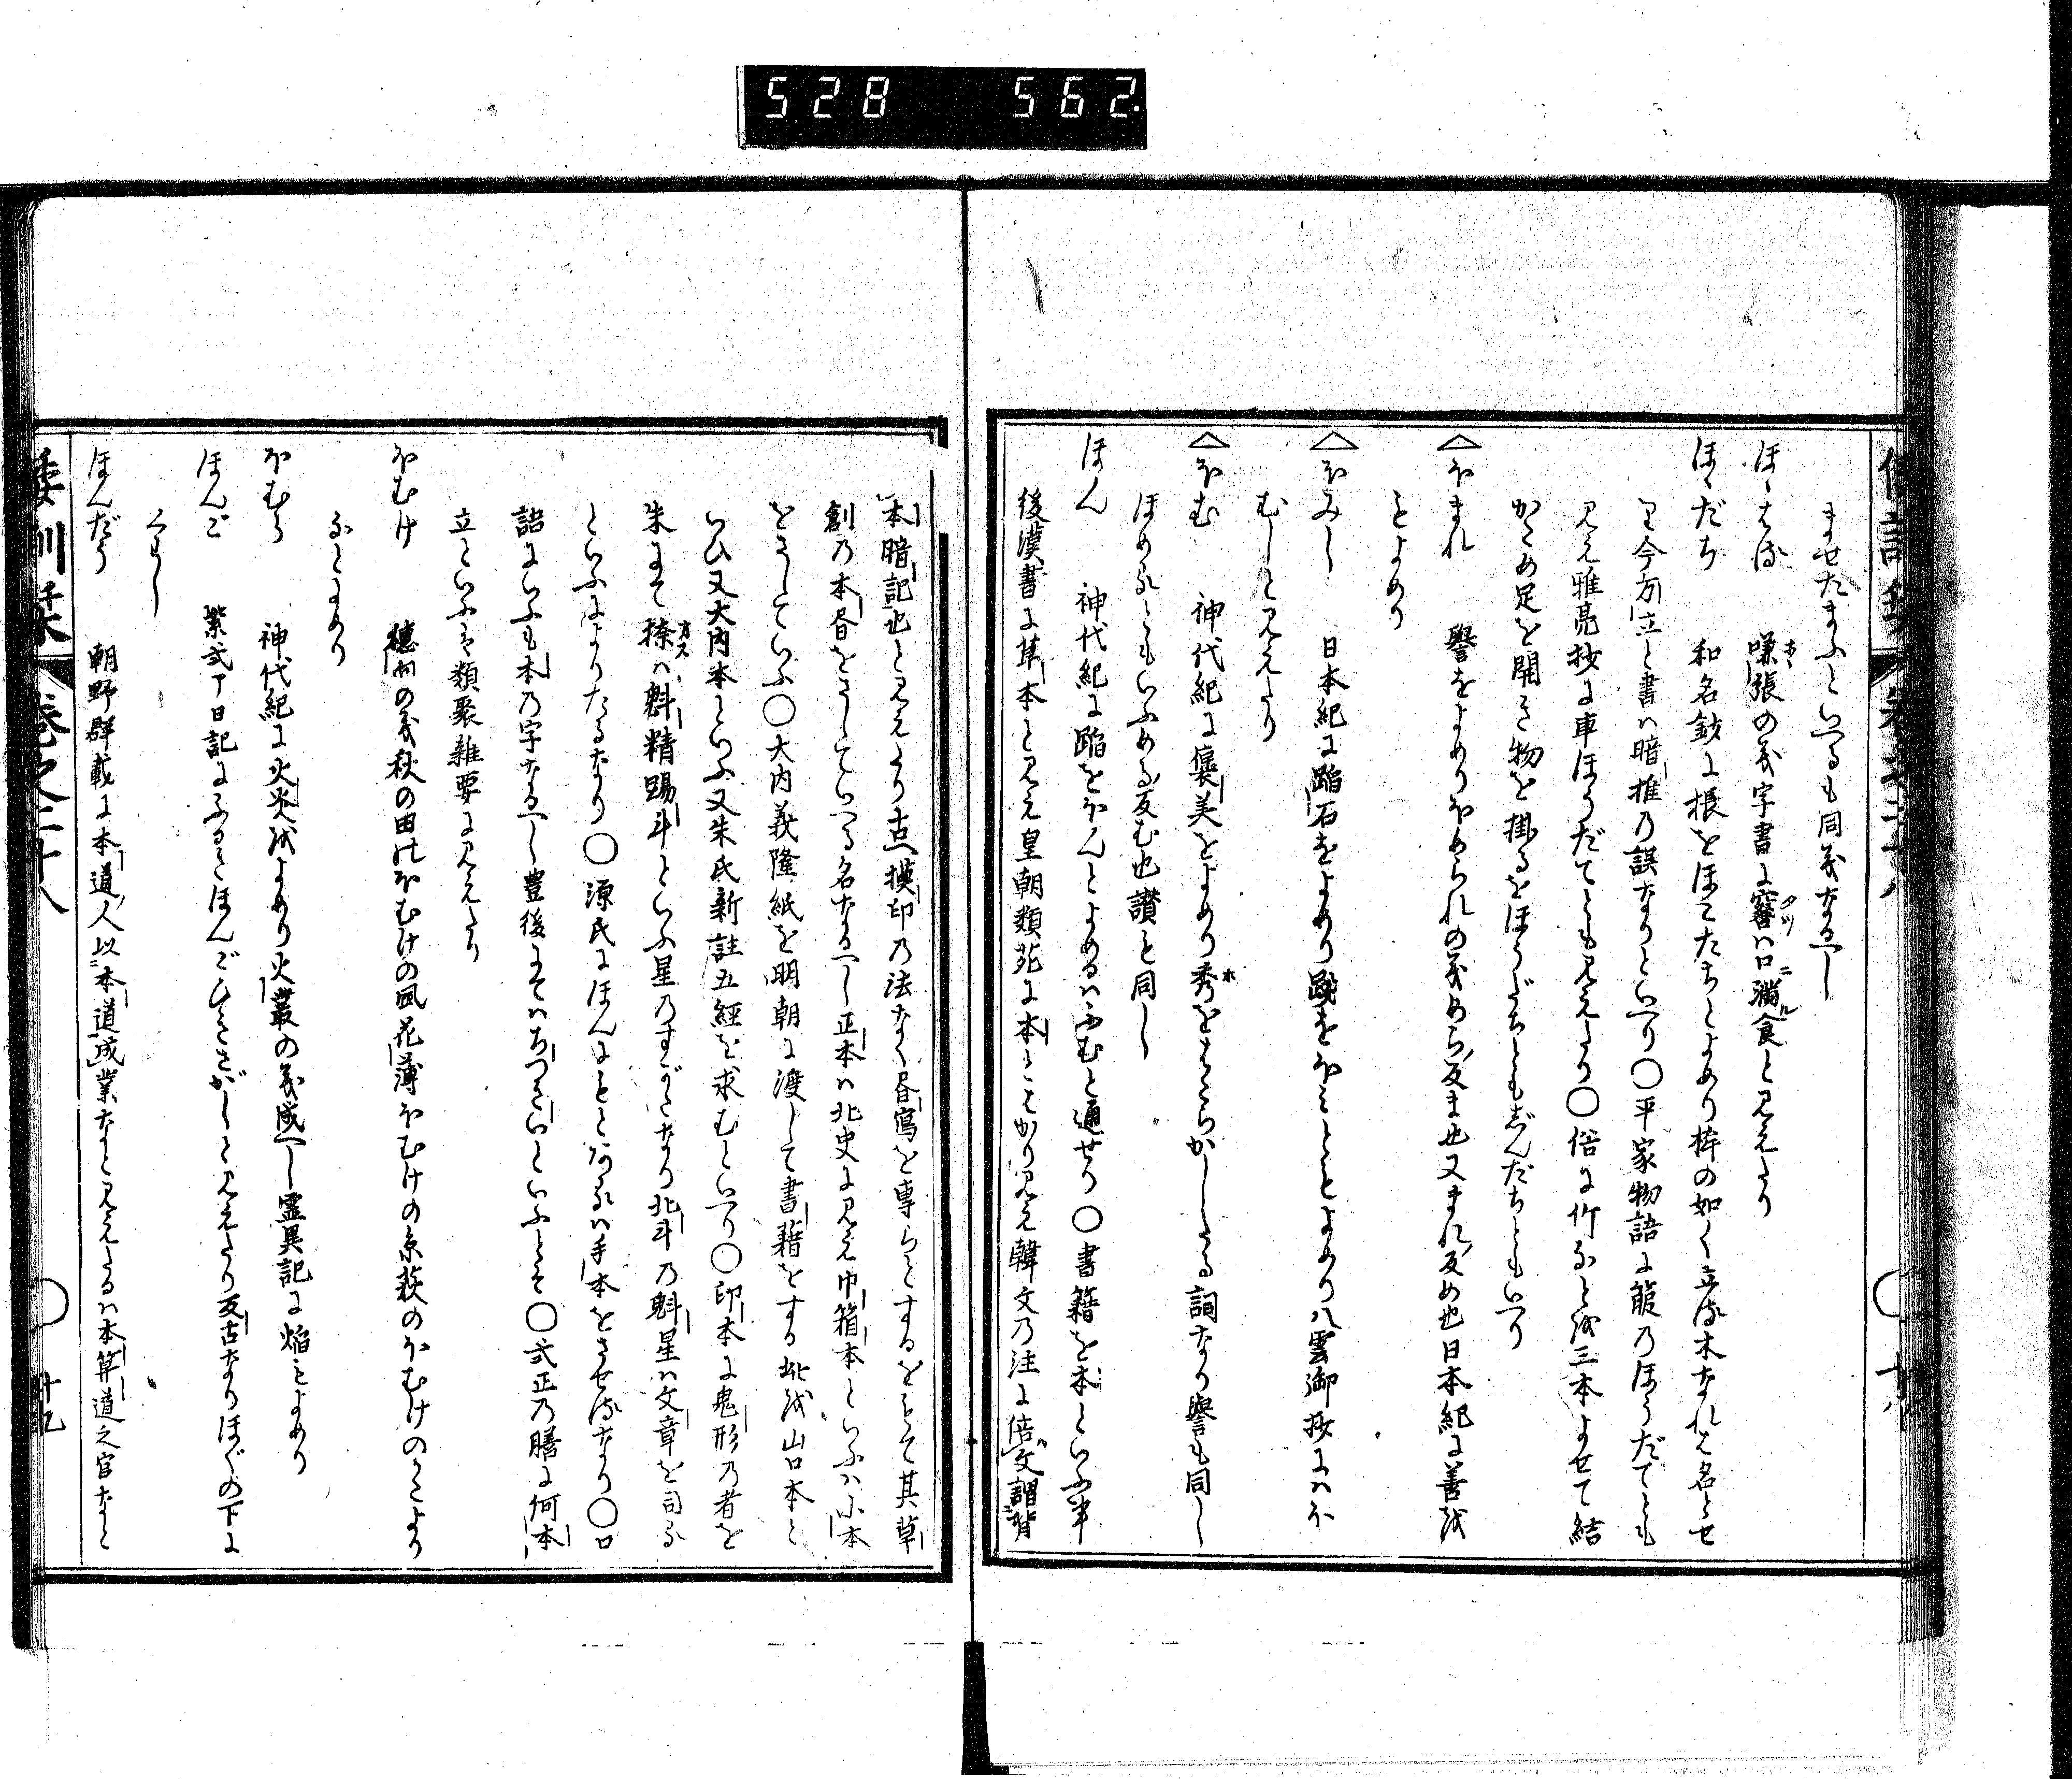 528 562
ませたまふといへるも同義なるへし
ほゝはる 嗛張の義字書に窡ハ口ニ滿ル食と見えたり
ほゝだち 和名鈔に棖をほこたちとよめり桙の如く立る木なれは名とせ
り今方立と書ハ暗推の誤なりといへり〇平家物語に箙のほうだてとも
見え雅亮抄に車ほうだてとも見えたり〇俗に竹なとを三本よせて結
かため足を開き物を掛るをほうだちともぢんだちともいへり
△ほまれ 譽をよめりほめられの義めら反ま也又まれ反め也日本紀に善を
もよめり
△ほみし 日本紀に蹈石をよめり踐をほみことよめり八雲御抄にハほ
むしと見えたり
△ほむ 神代紀に褒美をよめり秀をはたらかしたる詞なり譽も同し
ほめるともいふめる反む也讃も同し
ほん 神代紀に蹈をほんとよめるハふむと通せり〇書籍を本といふ事
後漢書に草本と見え皇朝類苑に本とはかり見え韓文の注に倍文謂背
本暗記也と見えたり古へ摸印の法なく昼寫を専らとするをもて其草
創の本昼をさしていへる名なるへし正本ハ北史に見え巾箱本といふハ小本
をさしていふ〇大内義隆紙を明朝に渡して書籍をする此を山口本と
いひ又大内本といふ又朱氏新註五經を求むといへり〇印本に鬼形の者を
朱にて捺ハ魁精踢斗といふ星のすがたなり北斗の魁星ハ文章を司る
といふによりたるなり〇源氏にほんにもとあるハ手本をさせるなり〇口
語にいふも本の字なるへし豊後にてハちつといといふとそ〇弐正の膳に何本
立といふは類聚雜要に見えたり
ほむけ 穗向の義秋の田のほむけの風花薄ほむけの糸萩のほむけのとより
なとよめり
ほむら 神代紀に火炎をよめり火叢の義成へし霊異記に焔もよめり
ほんご 紫式ア日記にふるきほんごひきさがしと見えたり反古なりほぐの下に
くはし
ほんだう 朝野群載に本道人以本道成業なと見えたるハ本算道之官なと
倭訓栞 巻之二十八 〇 十九